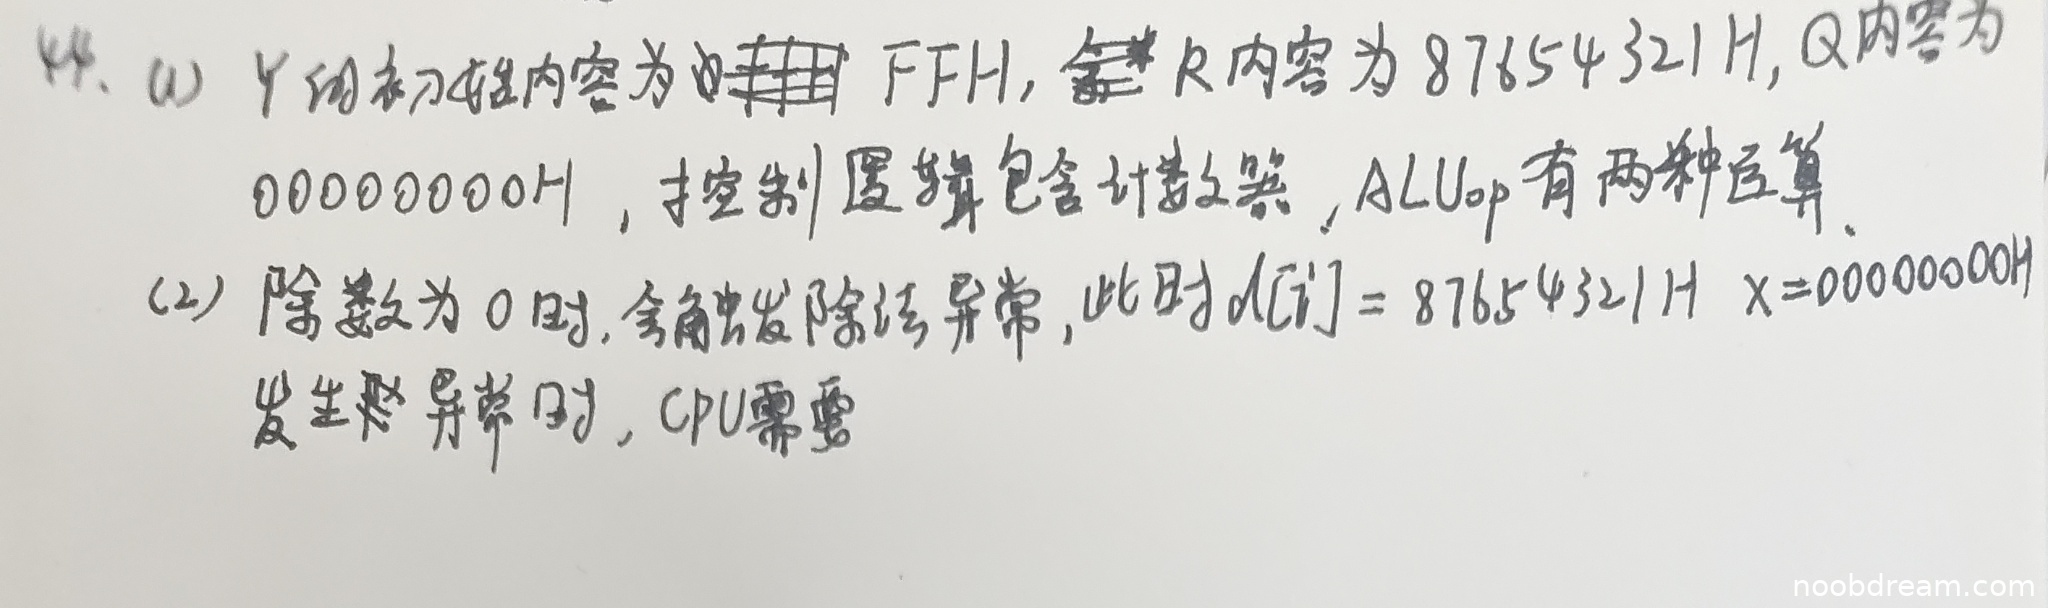 44. (1) Y的初始内容为 FFH, R内容为87654321H, Q内容为
00000000H, 控制逻辑包含计数器, ALUop有两种运算.
(2) 除数为0时, 会触发除法异常, 此时d[i] = 87654321H x=00000000H
发生 异常时, CPU需要
noobdream.com